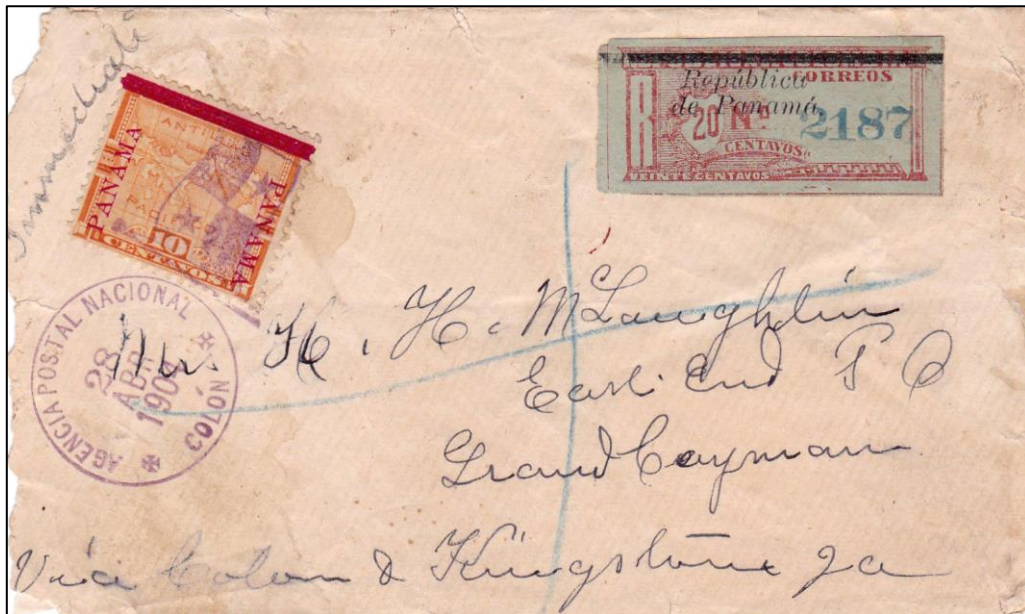 Immediate
PANAMA
PANAMA
10
CENTAVOS
CORREOS
República
de Panamá
R
20 No 2187
CENTAVOS
VEINTE CENTAVOS
AGENCIA POSTAL NACIONAL
COLÓN
28
ABR
1904
Mr. H. H. McLaughlin
East End P O
Grand Cayman
Via Colon & Kingston Ja